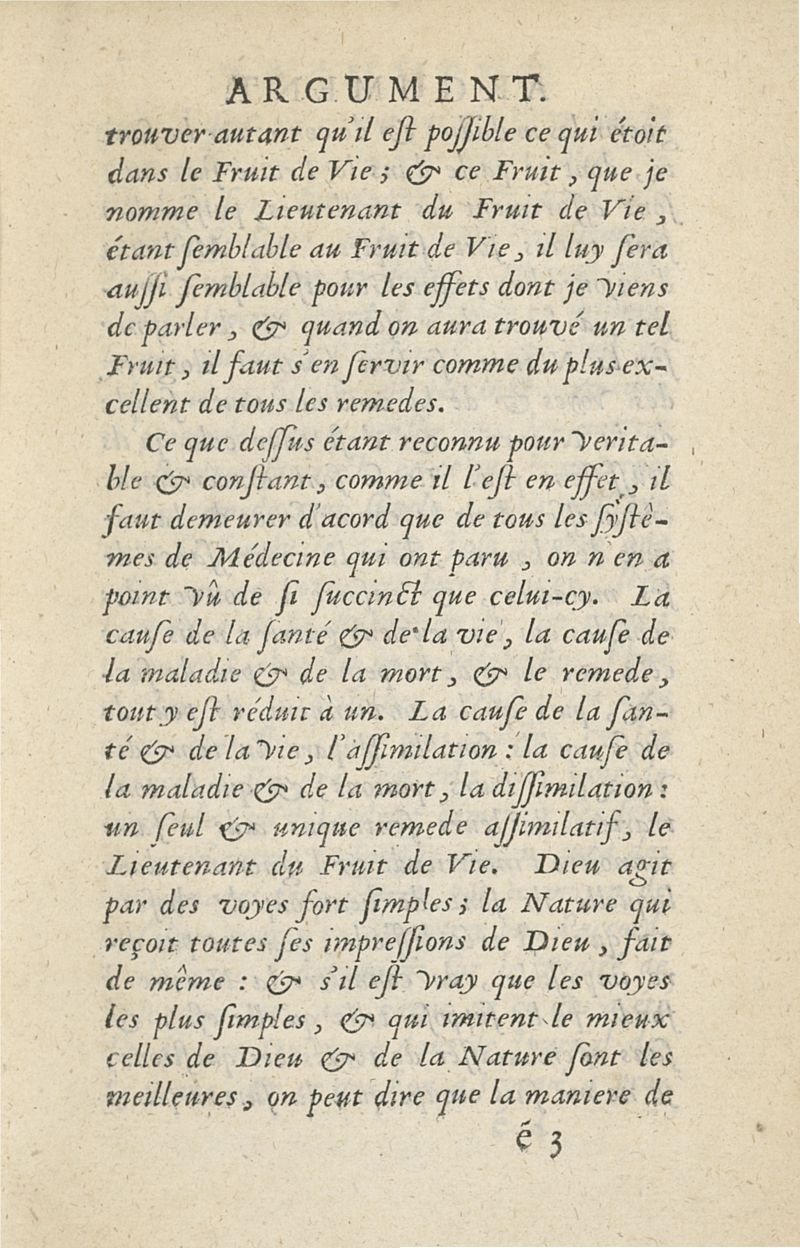 ARGUMENT.
trouver autant qu'il eſt poſſible ce qui étoit
dans le Fruit de Vie ; & ce Fruit, que je
nomme le Lieutenant du Fruit de Vie,
étant ſemblable au Fruit de Vie, il luy ſera
auſſi ſemblable pour les effets dont je viens
de parler, & quand on aura trouvé un tel
Fruit, il faut s'en ſervir comme du plus ex-
cellent de tous les remedes.
Ce que deſſus étant reconnu pour verita-
ble & conſtant, comme il l'eſt en effet, il
faut demeurer d'acord que de tous les ſyſtê-
mes de Médecine qui ont paru, on n'en a
point vû de ſi ſuccinct que celui-cy. La
cauſe de la ſanté & de la vie, la cauſe de
la maladie & de la mort, & le remede,
tout y eſt réduit à un. La cauſe de la ſan-
té & de la vie, l'aſſimilation : la cauſe de
la maladie & de la mort, la diſſimilation :
un ſeul & unique remede aſſimilatif, le
Lieutenant du Fruit de Vie. Dieu agit
par des voyes fort ſimples ; la Nature qui
reçoit toutes ſes impreſſions de Dieu, fait
de même : & s'il eſt vray que les voyes
les plus ſimples, & qui imitent le mieux
celles de Dieu & de la Nature ſont les
meilleures, on peut dire que la maniere de
é 3